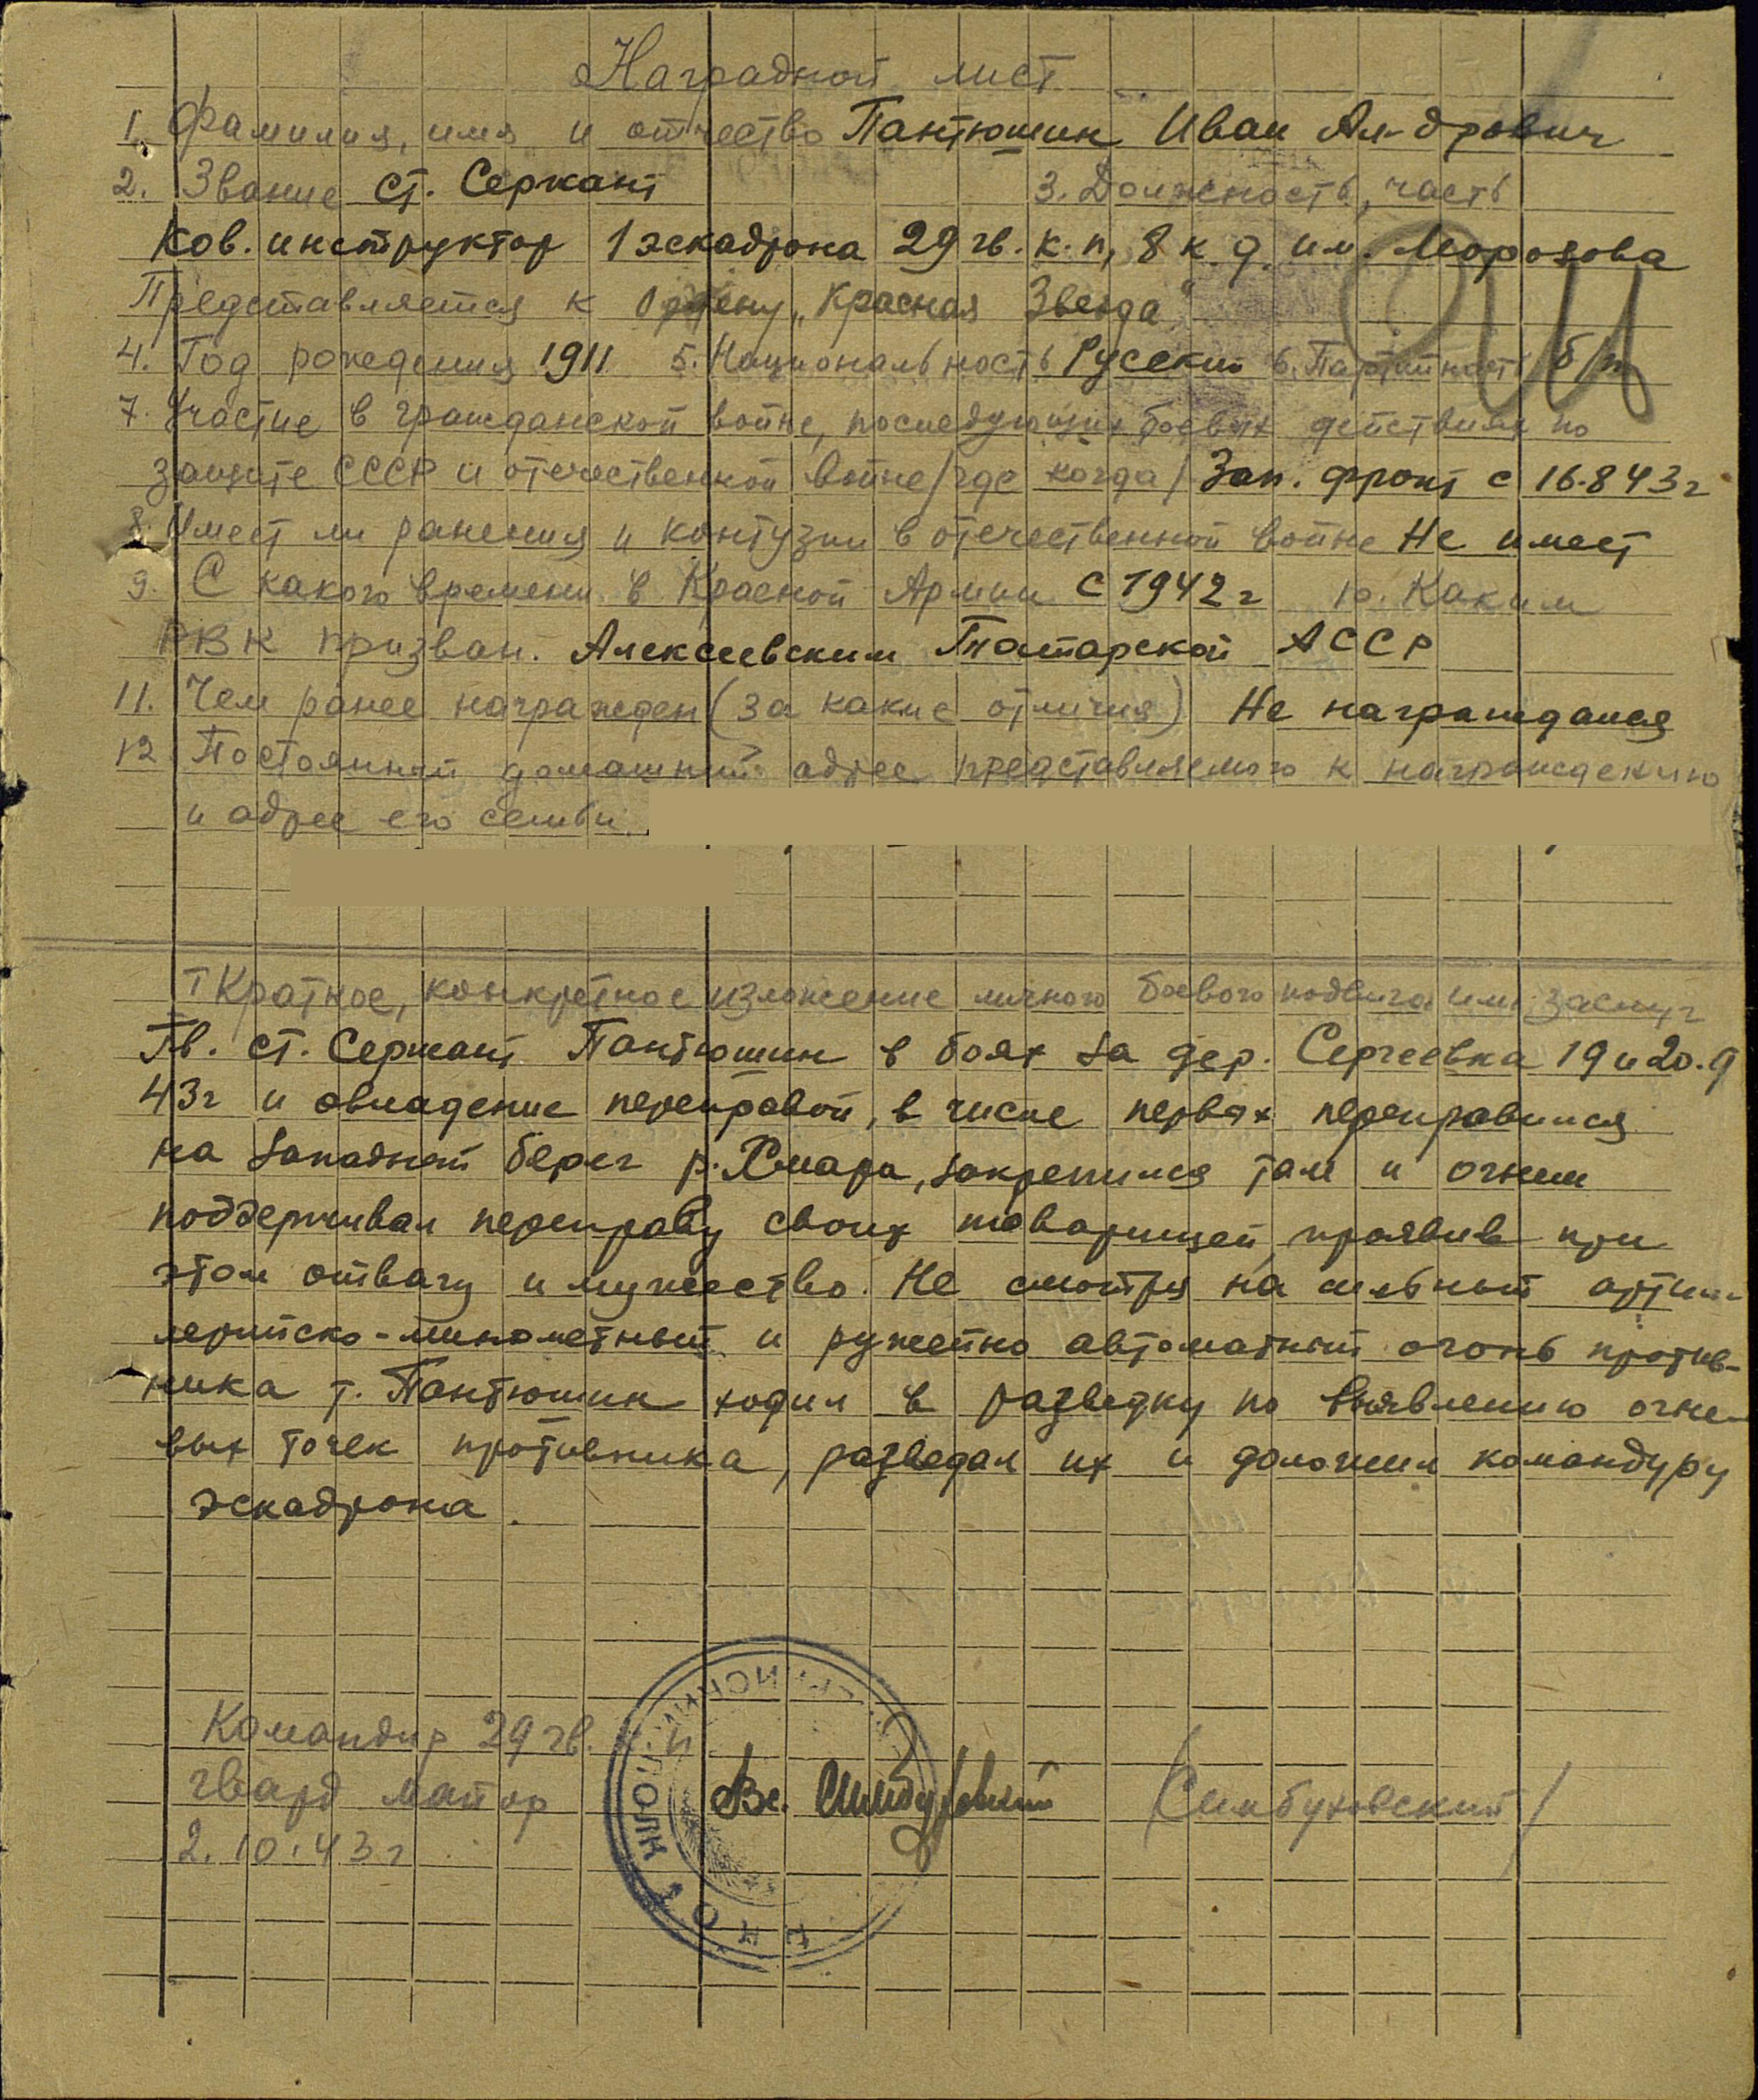 Наградной лист
1. Фамилия, имя и отчество Пантюшин Иван Ал-дрович
2. Звание ст. Сержант 3. Должность, часть
Ков. инструктор 1 эскадрона 29 гв. к. п, 8 к. д. им. Морозова
Представляется к Ордену „Красная Звезда"
4. Год рождения 1911 5. Национальность Русский 6. Партийность б/п
7. Участие в гражданской войне, последующих боевых действиях по
защите СССР и отечественной войне /где когда/ Зап. фронт с 16.8 43г
8. Имеет ли ранения и контузии в отечественной войне Не имеет
9. С какого времени в Красной Армии С 1942 г 10. Каким
РВК призван. Алексеевским Татарской АССР
11. Чем ранее награжден (за какие отличия) Не награждался
12 Постоянный домашний адрес представляемого к награждению
и адрес его семьи
I Краткое, конкретное изложение личного боевого подвига или заслуг
Гв. ст. Сержант Пантюшин в боях за дер. Сергеевка 19 и 20.9
43г и овладение переправой, в числе первых переправился
на западный берег р. Хмара, закрепился там и огнем
поддерживал переправу своих товарищей, проявив при
этом отвагу и мужество. Не смотря на сильный артил-
лерийско-минометный и ружейно автоматный огонь против-
ника т. Пантюшин ходил в разведку по выявлению огне-
вых точек противника, разведал их и доложил командуру
эскадрона.
Командир 29 гв. к. п
гвард майор /Симбуховский/
2.10.43 г
ПОЛК